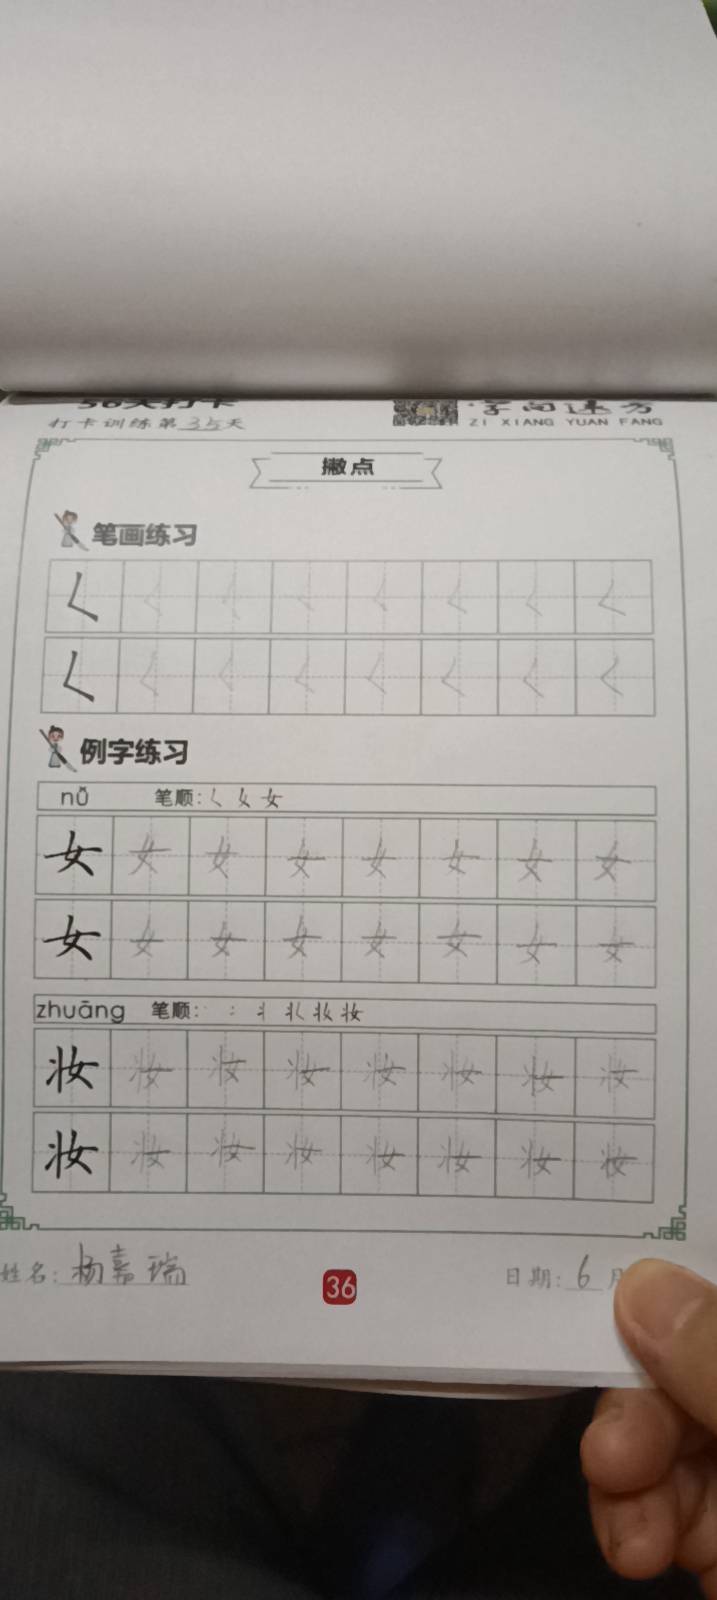 56天打卡
打卡训练第35天
字向远方
ZI XIANG YUAN FANG
撇点
笔画练习
𡿨 𡿨 𡿨 𡿨 𡿨 𡿨 𡿨 𡿨
𡿨 𡿨 𡿨 𡿨 𡿨 𡿨 𡿨 𡿨
例字练习
nǚ 笔顺: 𡿨 女 女
女 女 女 女 女 女 女 女
女 女 女 女 女 女 女 女
zhuāng 笔顺: 妆
妆 妆 妆 妆 妆 妆 妆 妆
妆 妆 妆 妆 妆 妆 妆 妆
姓名: 杨嘉瑞
36
日期: 6月